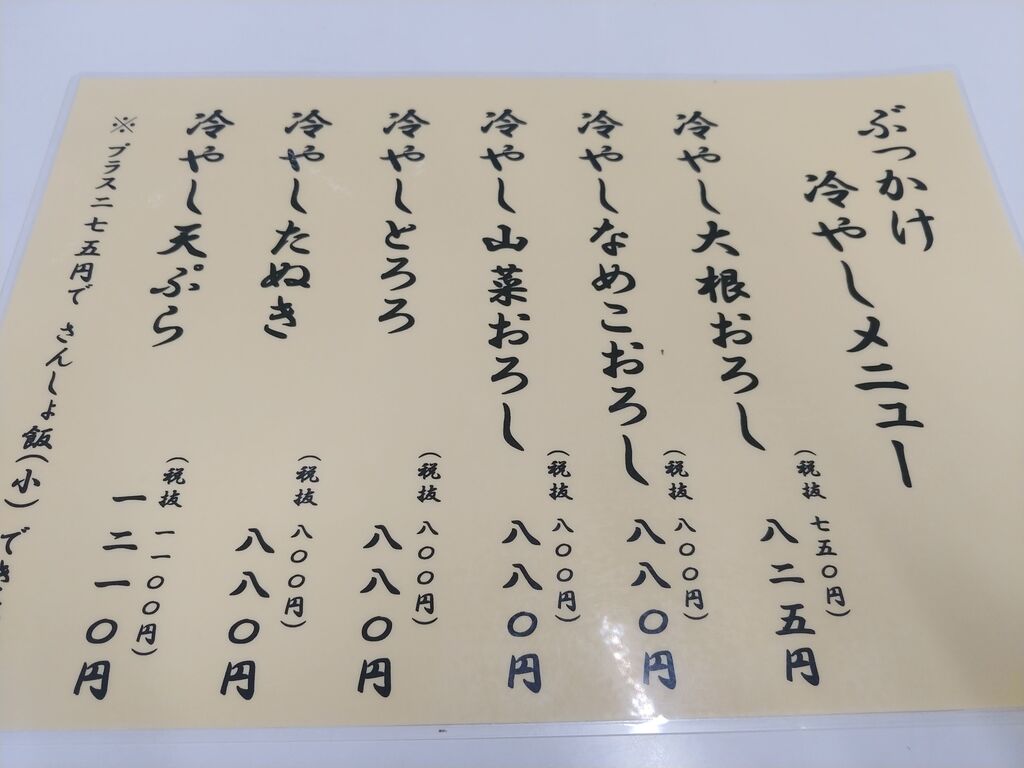 ぶっかけ
冷やしメニュー
冷やし大根おろし
(税抜 七五〇円)
八二五円
冷やしなめこおろし
(税抜 八〇〇円)
八八〇円
冷やし山菜おろし
(税抜 八〇〇円)
八八〇円
冷やしとろろ
(税抜 八〇〇円)
八八〇円
冷やしたぬき
(税抜 八〇〇円)
八八〇円
冷やし天ぷら
(税抜 一一〇〇円)
一二一〇円
※プラス二七五円で さんしょ飯(小)でき